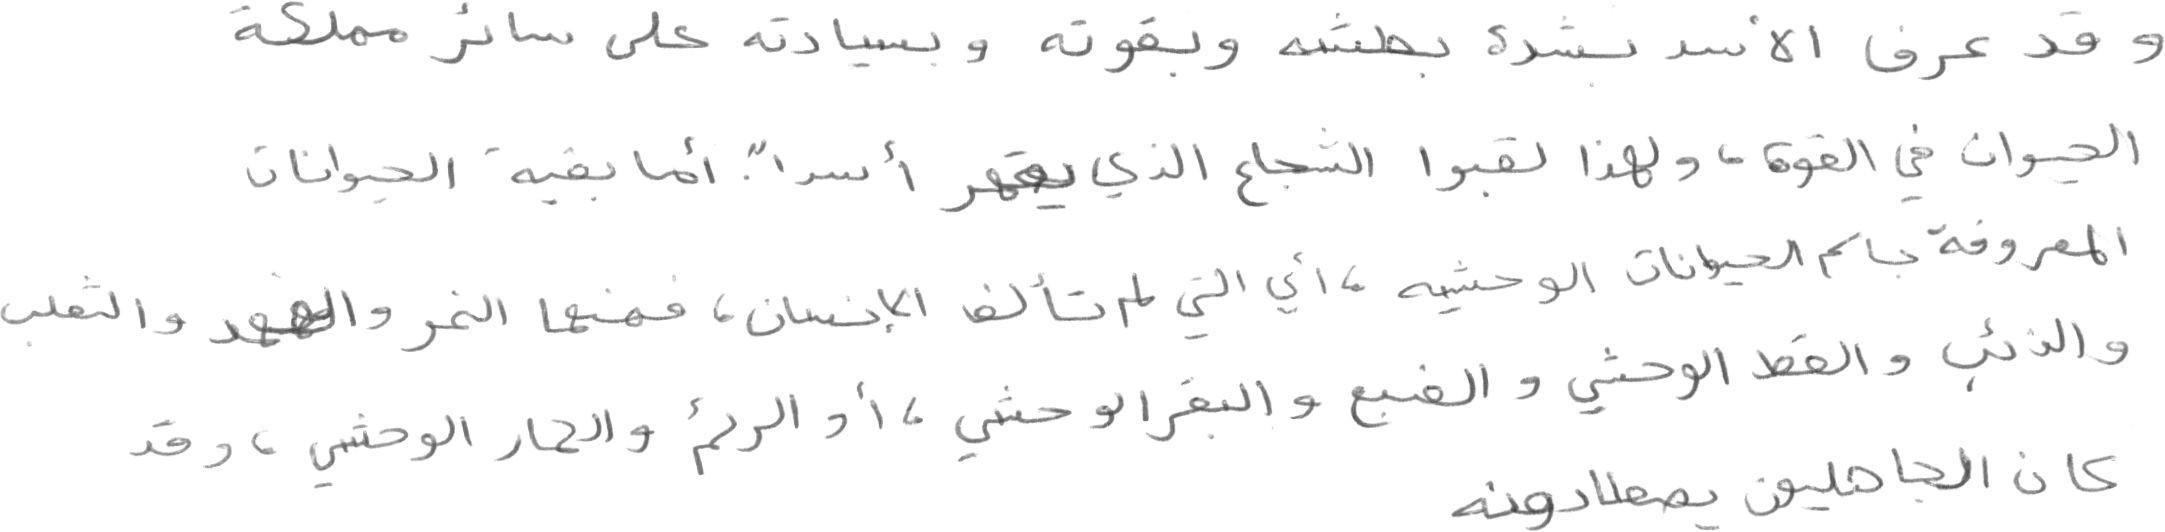 وقد عرف الأسد بشدة بطشه وبقوته وبسيادته على سائر مملكة
الحيوان في القوة، ولهذا لقبوا الشجاع الذي يقهر أسدا". أما بقية الحيوانات
المعروفة باسم الحيوانات الوحشيه، أي التي لم تألف الإنسان، فمنها النمر والفهد والثعلب
والذئب والقط الوحشي والضبع والبقر الوحشي، أو الرئم والحمار الوحشي، وقد
كان الجاهليون يصطادونه